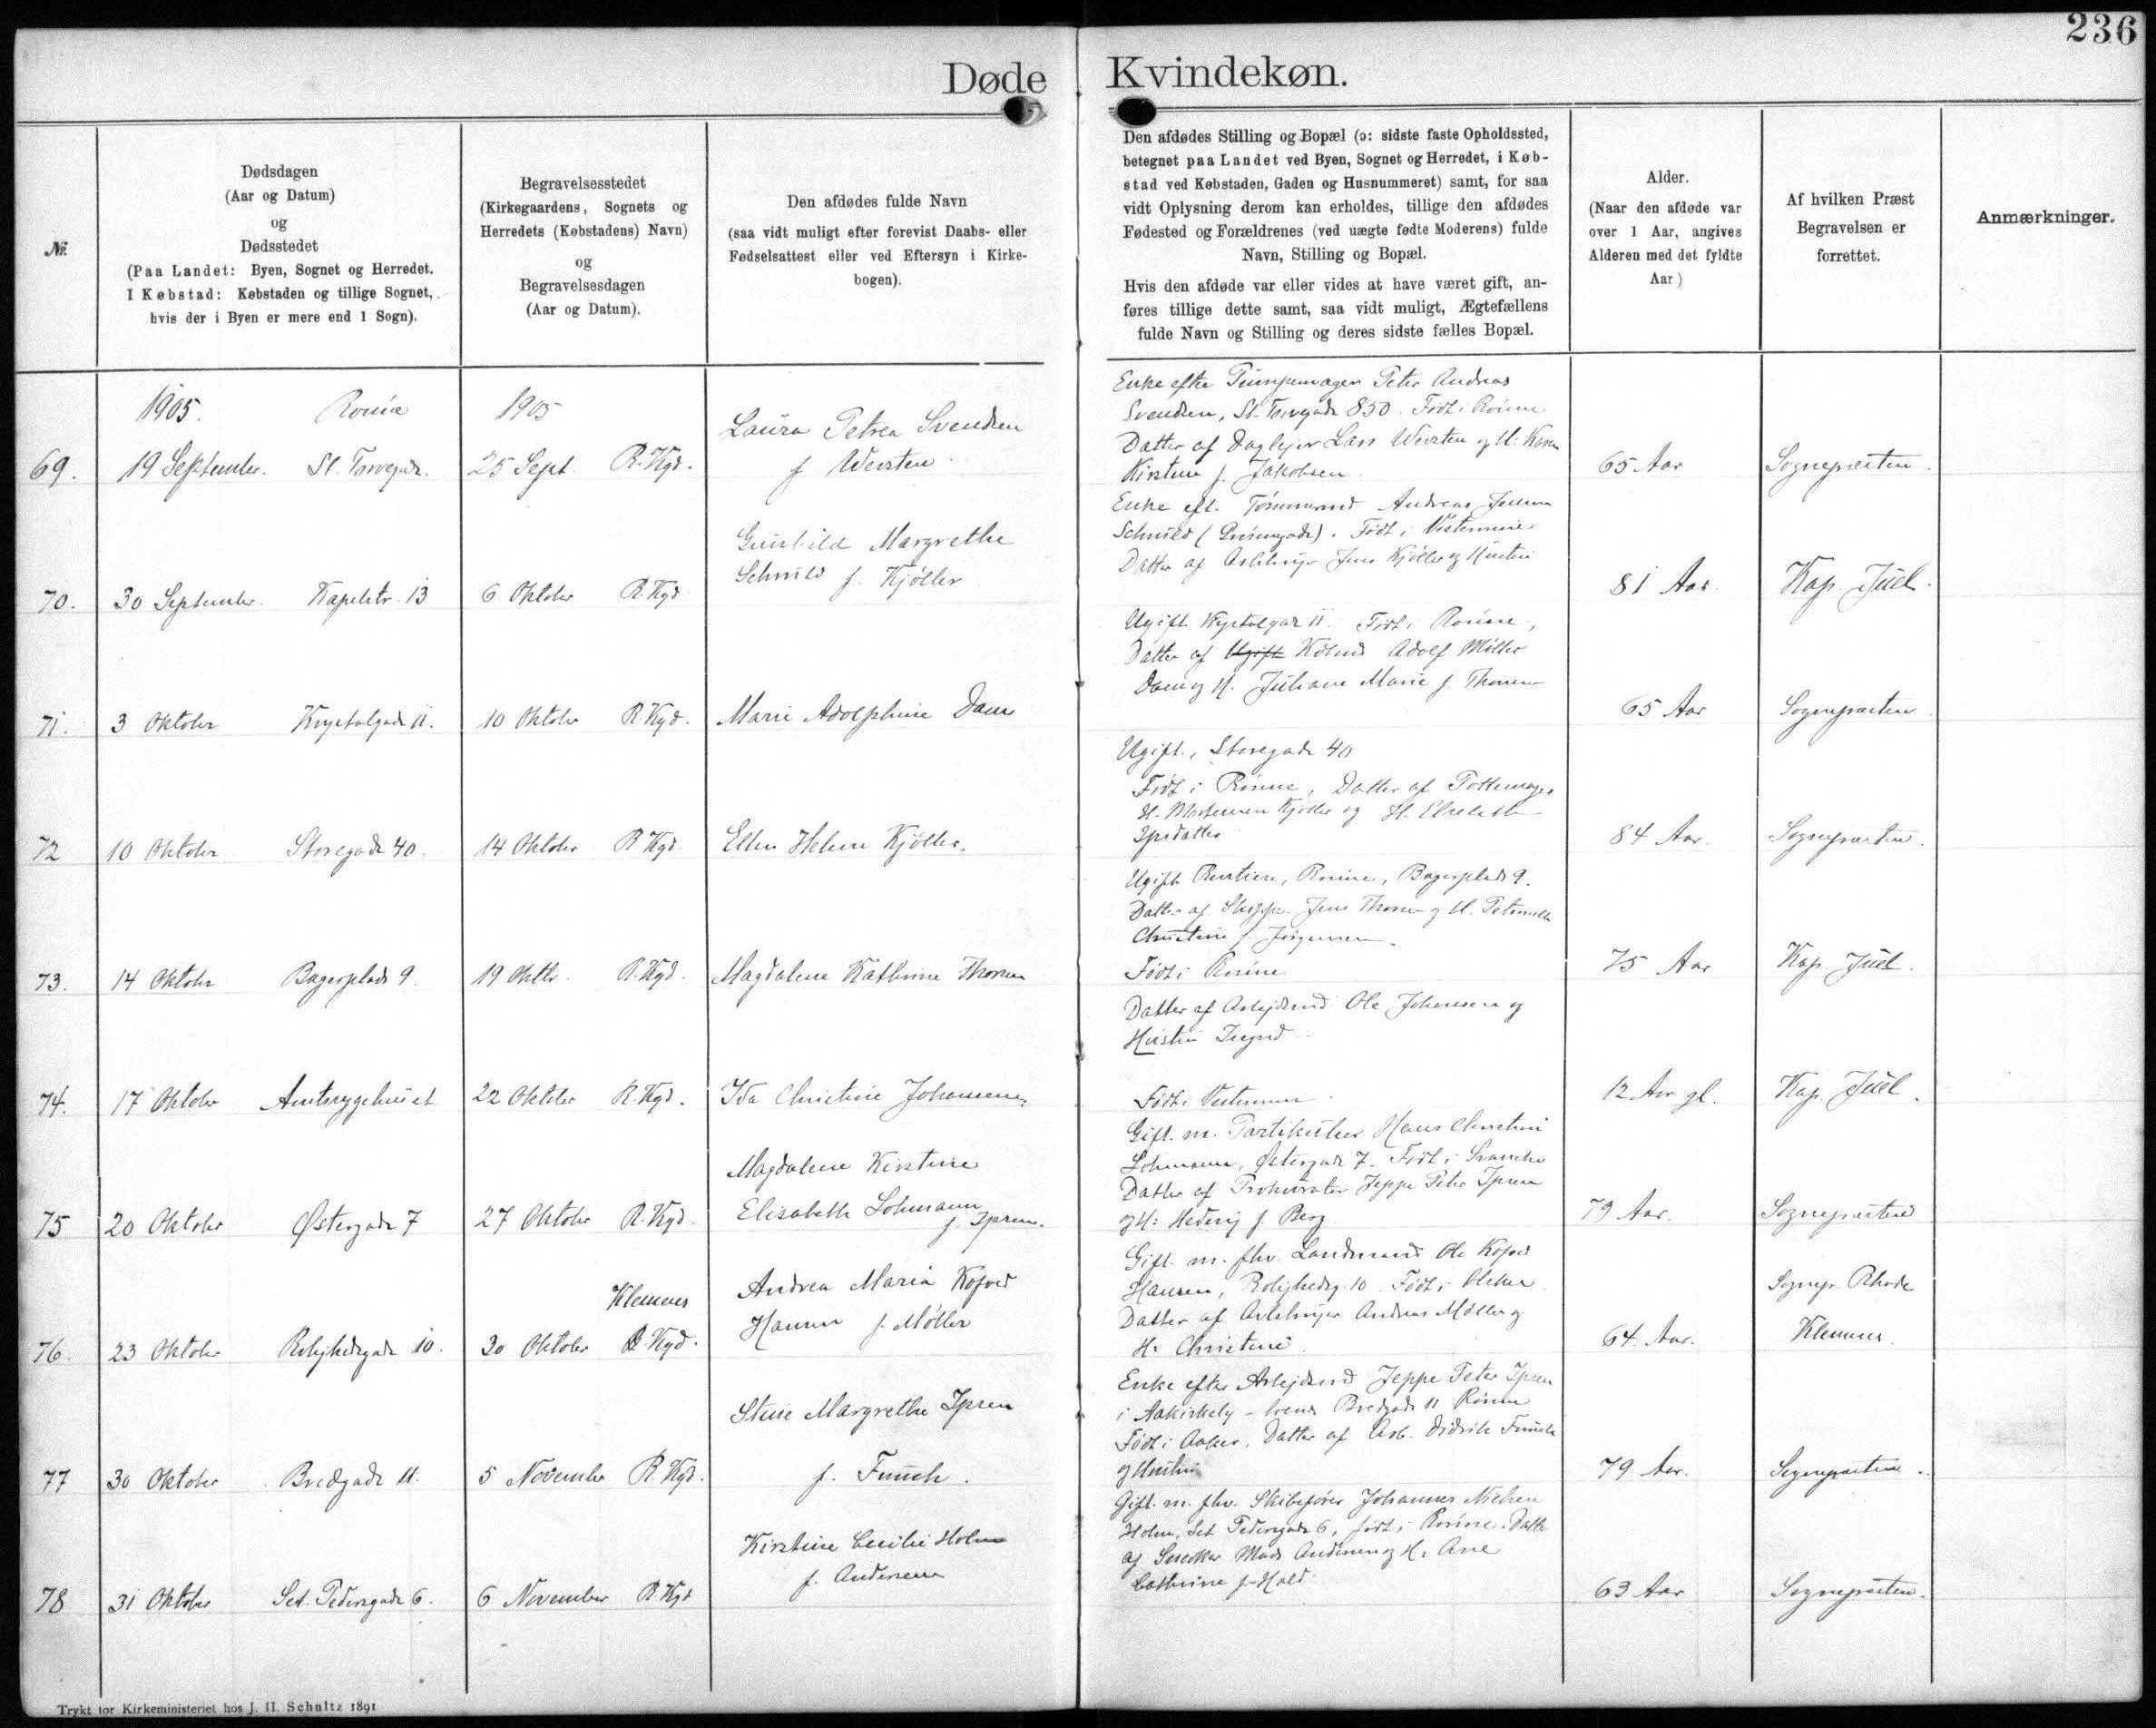 236
Døde Kvindekøn.
№
Dødsdagen
(Aar og Datum)
og
Dødsstedet
(Paa Landet: Byen, Sognet og Herredet.
I Købstad: Købstaden og tillige Sognet,
hvis der i Byen er mere end 1 Sogn).
Begravelsesstedet
(Kirkegaardens, Sognets og
Herredets (Købstadens) Navn)
og
Begravelsesdagen
(Aar og Datum).
Den afdødes fulde Navn
(saa vidt muligt efter forevist Daabs- eller
Fødselsattest eller ved Eftersyn i Kirke-
bogen).
Den afdødes Stilling og Bopæl (ɔ: sidste faste Opholdssted,
betegnet paa Landet ved Byen, Sognet og Herredet, i Køb-
stad ved Købstaden, Gaden og Husnummeret) samt, for saa
vidt Oplysning derom kan erholdes, tillige den afdødes
Fødested og Forældrenes (ved uægte fødte Moderens) fulde
Navn, Stilling og Bopæl.
Hvis den afdøde var eller vides at have været gift, an-
føres tillige dette samt, saa vidt muligt, Ægtefællens
fulde Navn og Stilling og deres sidste fælles Bopæl.
Alder.
(Naar den afdøde var
over 1 Aar, angives
Alderen med det fyldte
Aar)
Af hvilken Præst
Begravelsen er
forrettet.
Anmærkninger.
1905. Rønne
1905
69.
19 September. St. Torvegade.
25 Sept. R. Kgd.
Laura Petrea Svendsen
f
Enke efter Pumpemager Peter Andreas
Svendsen, St. Torvegade 850. Født i Rønne
Datter af Daglejer Lars
Kirstine f. Jakobsen
65 Aar
Sognepræsten
70.
30 September. Kapelstr. 13
6 Oktober R Kgd
Gunhild Margrethe
Schmild f. Kjøller
Enke eft. Tømmermd Andreas Jensen
Schmild. Født i Vestermarie
Datter af Avlsbruger Jens Kjøller og Hustru
81 Aar.
Kap. Juel.
71.
3 Oktober Krystalgade 11.
10 Oktober R. Kgd.
Marie Adolphine Dam
Ugift Krystalgade 11. Født i Rønne,
Datter af Ugift Adolf Møller
Dam og H. Juliane Marie f. Thorsen
65 Aar
Sognepræsten
72
10 Oktober Storegade 40.
14 Oktober R Kgd
Ellen Helene Kjøller.
Ugift, Storegade 40
Født i Rønne, Datter af Pottemager
H. Mortensen Kjøller og H. Elsebeth
Ipsdatter
84 Aar.
Sognepræsten.
73.
14 Oktober Bagerplads 9
19 Oktbr. R. Kgd.
Magdalene Kathrine Thorsen
Ugift Rentiere, Rønne, Bagerplads 9.
Datter af Skipper Jens Thorsen og H. Petronelle
Christine f. Jørgensen
Født i Rønne
75 Aar
Kap. Juel.
74.
17 Oktober Amtssygehuset
22 Oktober R. Kgd.
Ida Christine Johansen,
Datter af Arbejdsmd Ole Johansen og
Hustru
Født i
12 Aar gl.
Kap. Juel.
75
20 Oktober Østergade 7
27 Oktober R. Kgd.
Magdalene Kirstine
Elisabeth Lohmann
f. Ipsen.
Gift. m. Partikulier Hans Christian
Lohmann, Østergade 7. Født i Svaneke
Datter af Prokurator Jeppe Peter Ipsen
og H: Hedevig f. Berg
79 Aar.
Sognepræsten
76.
23 Oktober Rolighedsgade 10.
Klemens
30 Oktober R. Kgd.
Andrea Maria Kofoed
Hansen f. Møller
Gift. m. fhv. Landmand Ole Kofoed
Hansen, Rolighedsg. 10. Født i Olsker
Datter af Avlsbruger Andreas Møller og
H. Christine
64 Aar.
Sognepr. Rhode
Klemens.
77
30 Oktober Bredgade 11.
5 November R. Kgd.
Stine Margrethe Ipsen
f. Funch.
Enke efter Arbejdsmd Jeppe Peter Ipsen
i Aakirkeby – boende Bredgade 11 Rønne
Født i Aaker. Datter af Arb. Didrik Funch
og Hustru
79 Aar.
Sognepræsten.
78
31 Oktober Sct. Pedersgade 6.
6 November R Kgd
Kirstine Cecilie Holm
f. Andersen
Gift. m. fhv. Skibsfører Johannes Nielsen
Holm, Sct Pedersgade 6, født i Rønne. Datter
af Snedker Mads Andersen og H. Ane
Cathrine f. Hald
63 Aar
Sognepræsten.
Trykt for Kirkeministeriet hos J. H. Schultz 1891